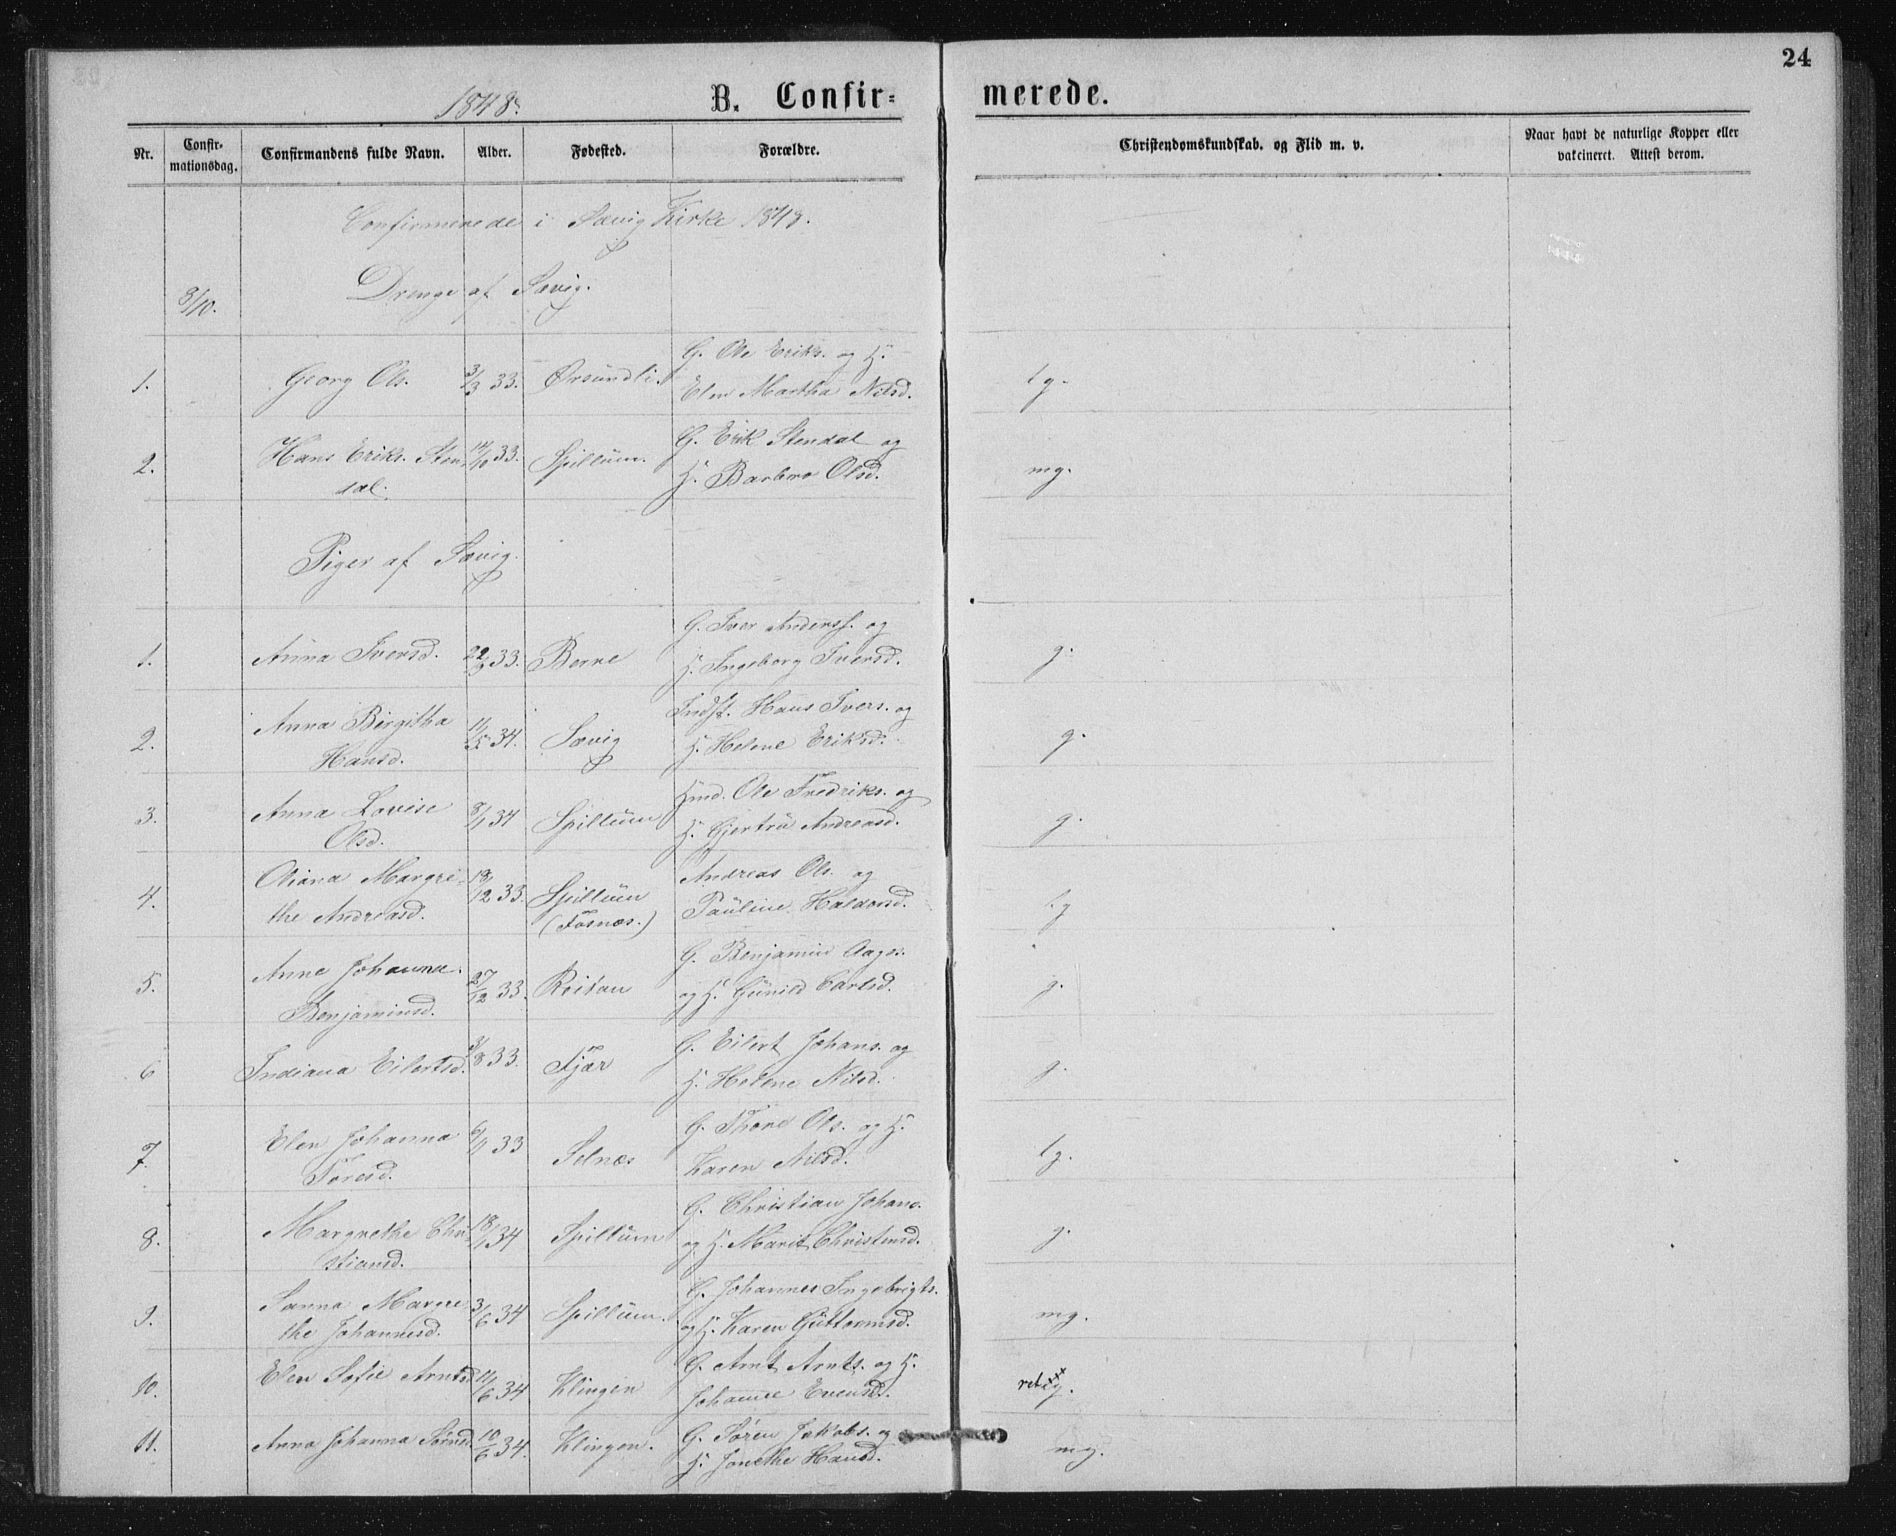 24
1848.
B. Confirmerede.
Nr. Confirmationsdag. Confirmandens fulde Navn. Alder. Fødested. Forældre. Christendomskundskab. og Flid m. v. Naar havt de naturlige Kopper eller vakcineret. Attest derom.
Confirmerede i Sævig Kirke 1848.
8/10. Drenge af Sævig.
G. Ole Eriks. og H.
1. Georg Ols. 3/3 33. Ørsundli. Elen Martha Nilsd. tg.
G. Erik Stendal og
2. Hans Eriks. Sten- 14/10 33. Spillum. H. Barbro Olsd. mg.
dal.
Piger af Sævig.
G. Iver Anderss. og
1. Anna Iversd. 22/9 33. Berre H. Ingeborg Iversd. g.
Anna Birgitha Indst. Hans Ivers. og
2. Hansd. 11/5 34. Sævig H. Helene Eriksd. g.
Anna Lovise Hmd. Ole Fredriks. og
3. Olsd. 8/1 34 Spillum H. Gjertru Andreasd. g.
Oliana Margre- 18/12 33. Spillum Andreas Ols. og
4. the Andreasd. (Fosnæs.) Pauline Haldorsd. tg
Anne Johanna G. Benjamin Aages.
5. Benjaminsd. 27/12 33. Reitan og H. Gunild Carlsd. g.
G. Eilert Johans. og
6 Indiana Eilertsd. 3/8 33. Fjær H. Helene Nilsd. g.
Elen Johanna G. Thore Ols. og H.
7. Toresd. 6/11 33 Selnæs Karen Nilsd. tg.
Margrethe Chri- G. Christian Johans.
8. stiansd. 18/1 34 Spillum og H. Marit Christensd. g.
Sanna Margre- G. Johannes Ingebrigts.
9. the Johannesd. 3/6 34 Spillum. og H. Karen Guttormsd. mg.
G. Arnt Arnts. og H.
10. Elen Sofie Arntsd. 11/6 34 Klingen Johanne Evensd. g.
G. Søren Jakobs. og
11. Anna Johanna Sørnsd. 10/6 34. Klingen. H. Jonethe Hansd. mg.